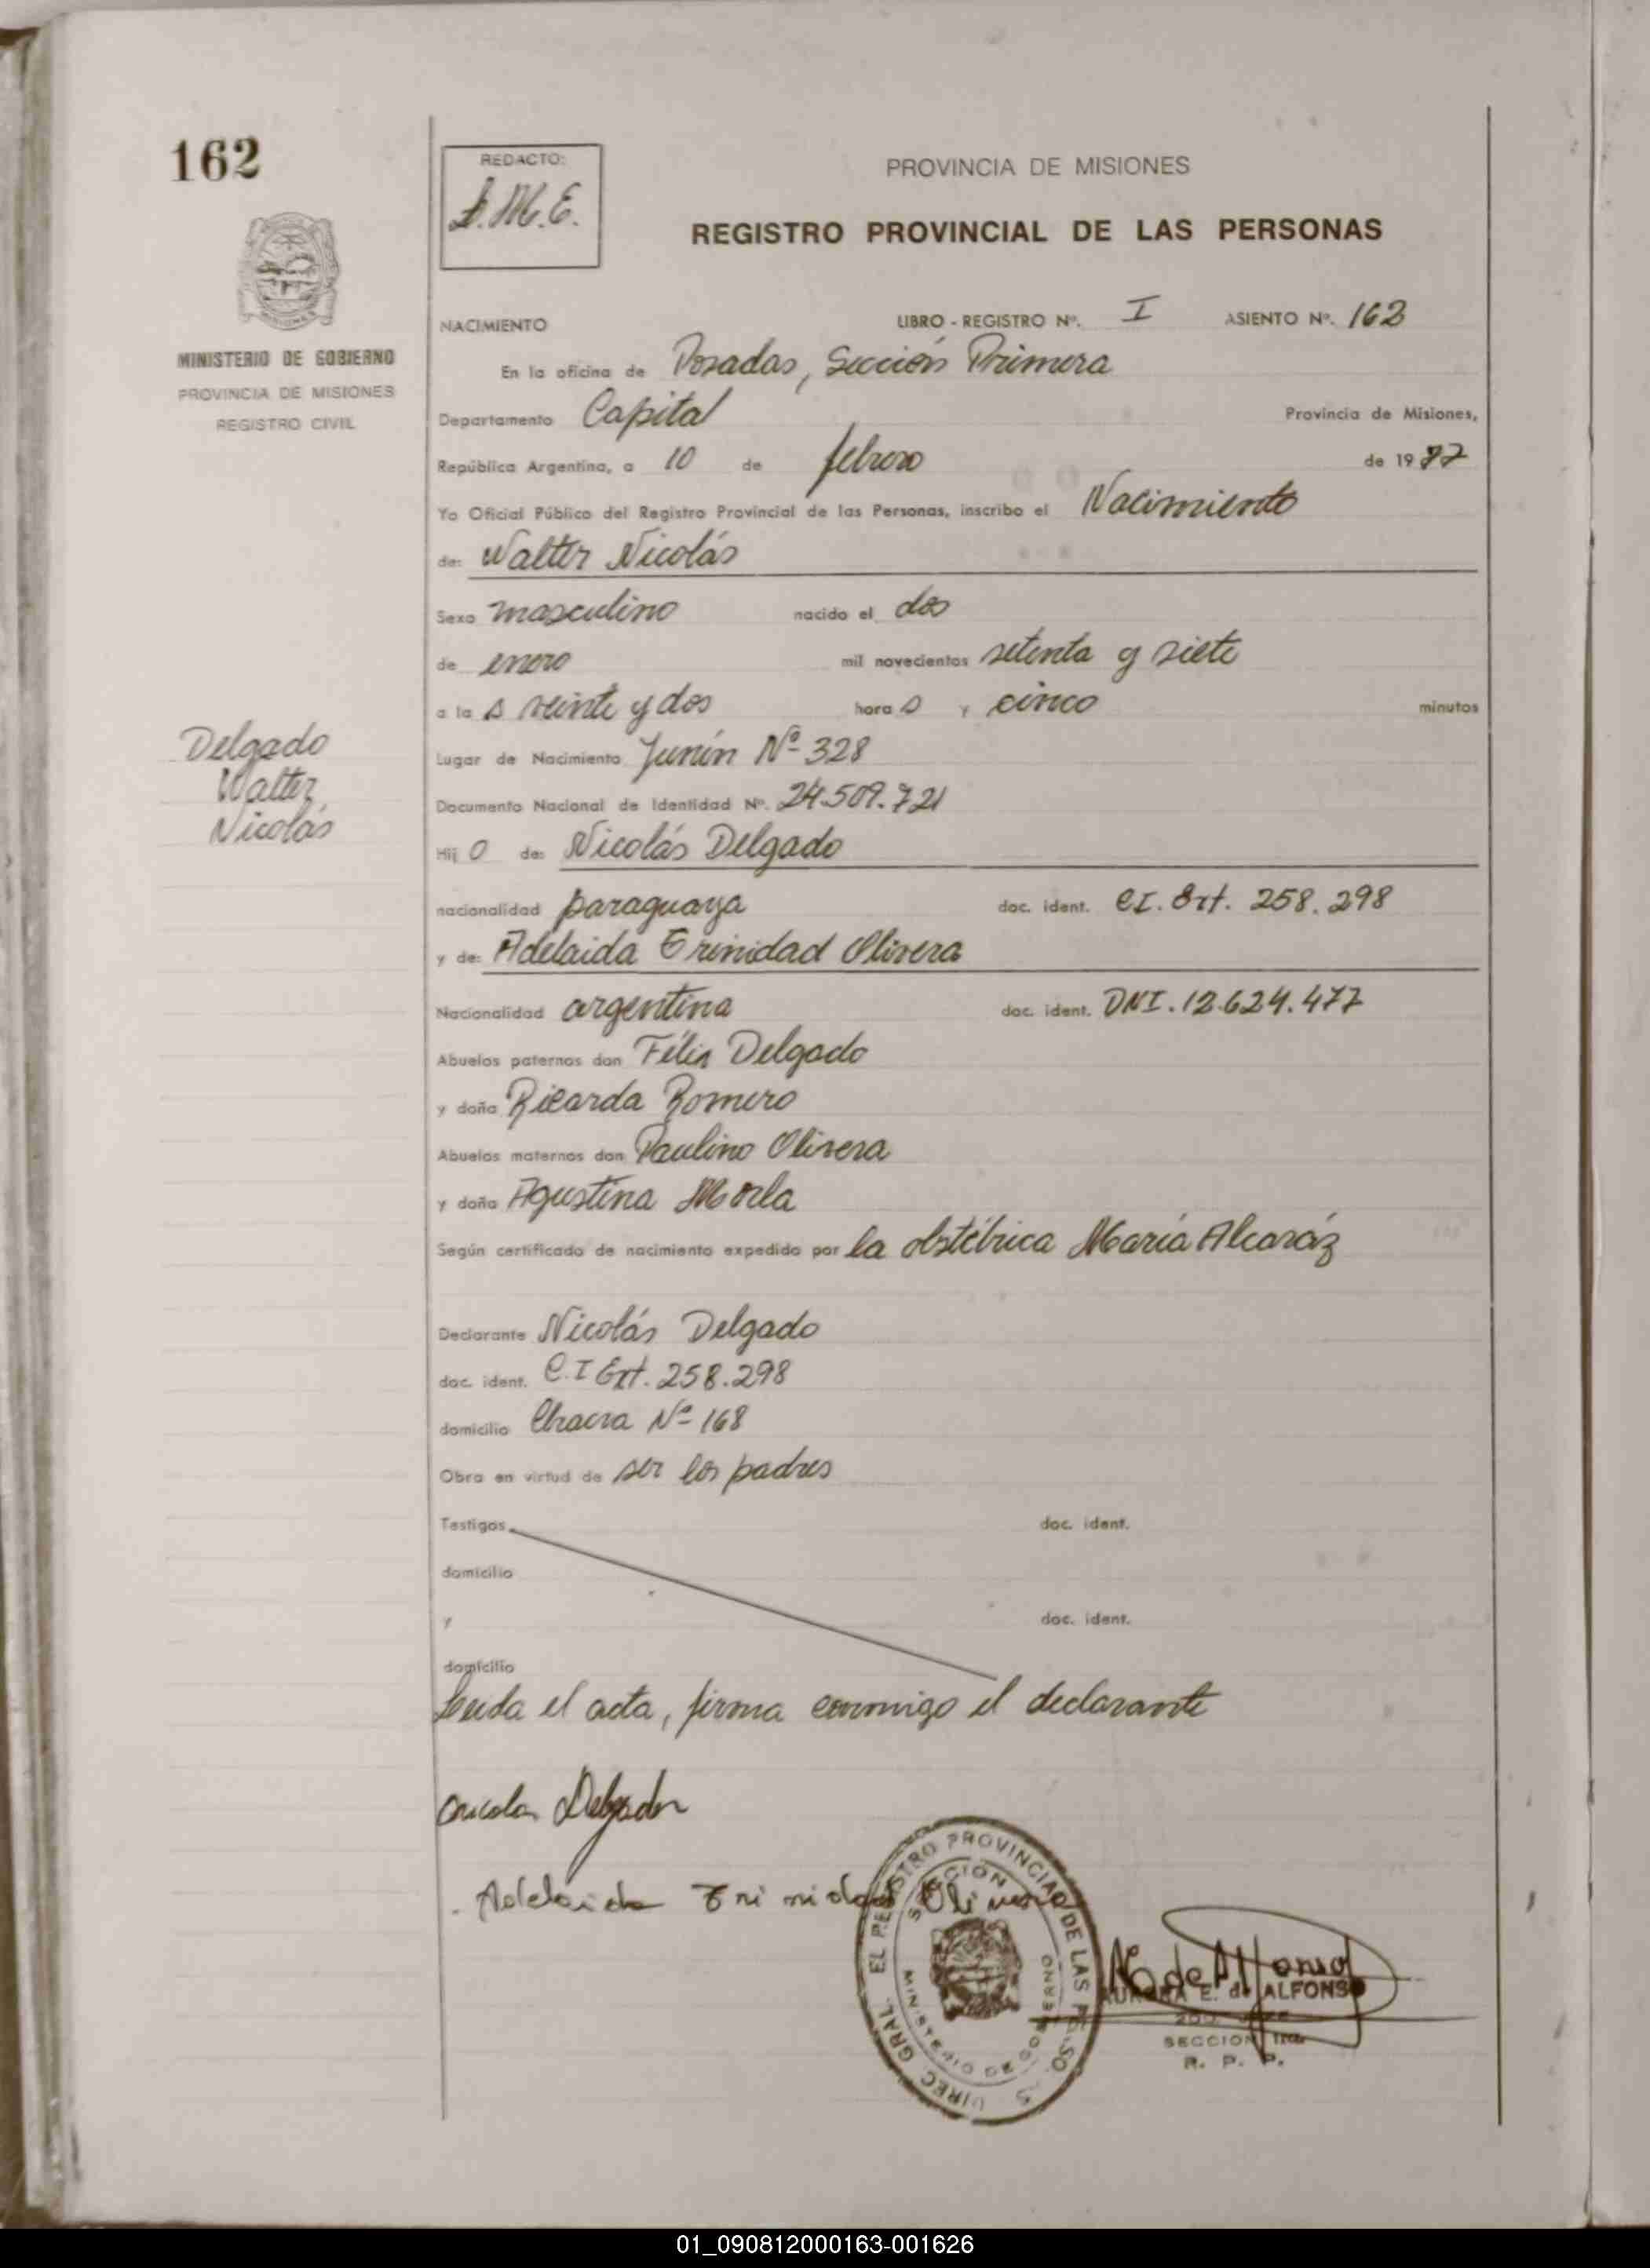 162
REDACTO:
L.M.E.
PROVINCIA DE MISIONES
REGISTRO PROVINCIAL DE LAS PERSONAS
MISIONES
MINISTERIO DE GOBIERNO
PROVINCIA DE MISIONES
REGISTRO CIVIL
NACIMIENTO LIBRO - REGISTRO Nº. I ASIENTO Nº. 162
En la oficina de Posadas, Sección Primera
Departamento Capital Provincia de Misiones,
República Argentina, a 10 de febrero de 1977
Yo Oficial Público del Registro Provincial de las Personas, inscribo el Nacimiento
de: Walter Nicolás
Sexo masculino nacido el dos
de enero mil novecientos setenta y siete
a la s veinte y dos hora s y cinco minutos
Delgado
Walter
Nicolás
Lugar de Nacimiento Junín Nº 328
Documento Nacional de Identidad Nº. 24.509.721
Hij o de: Nicolás Delgado
nacionalidad paraguaya doc. ident. CI. Ext. 258.298
y de: Adelaida Trinidad Olivera
Nacionalidad argentina doc. ident. DNI. 12.624.477
Abuelos paternos don Félix Delgado
y doña Ricarda Romero
Abuelos maternos don Paulino Olivera
y doña Agustina Morla
Según certificado de nacimiento expedido por la obstétrica María Alcaráz
Declarante Nicolás Delgado
doc. ident. C.I Ext. 258.298
domicilio Chacra Nº 168
Obra en virtud de ser los padres
Testigos doc. ident.
domicilio
y doc. ident.
domicilio
Leida el acta, firma conmigo el declarante
Nicolas Delgado
Adelaida Trinidad Olivera
DIREC. GRAL. EL REGISTRO PROVINCIAL DE LAS
SECCION
MINISTERIO DE GOBIERNO
AURORA E. de ALFONSO
SECCION 1RA
R. P. P.
01_090812000163-001626